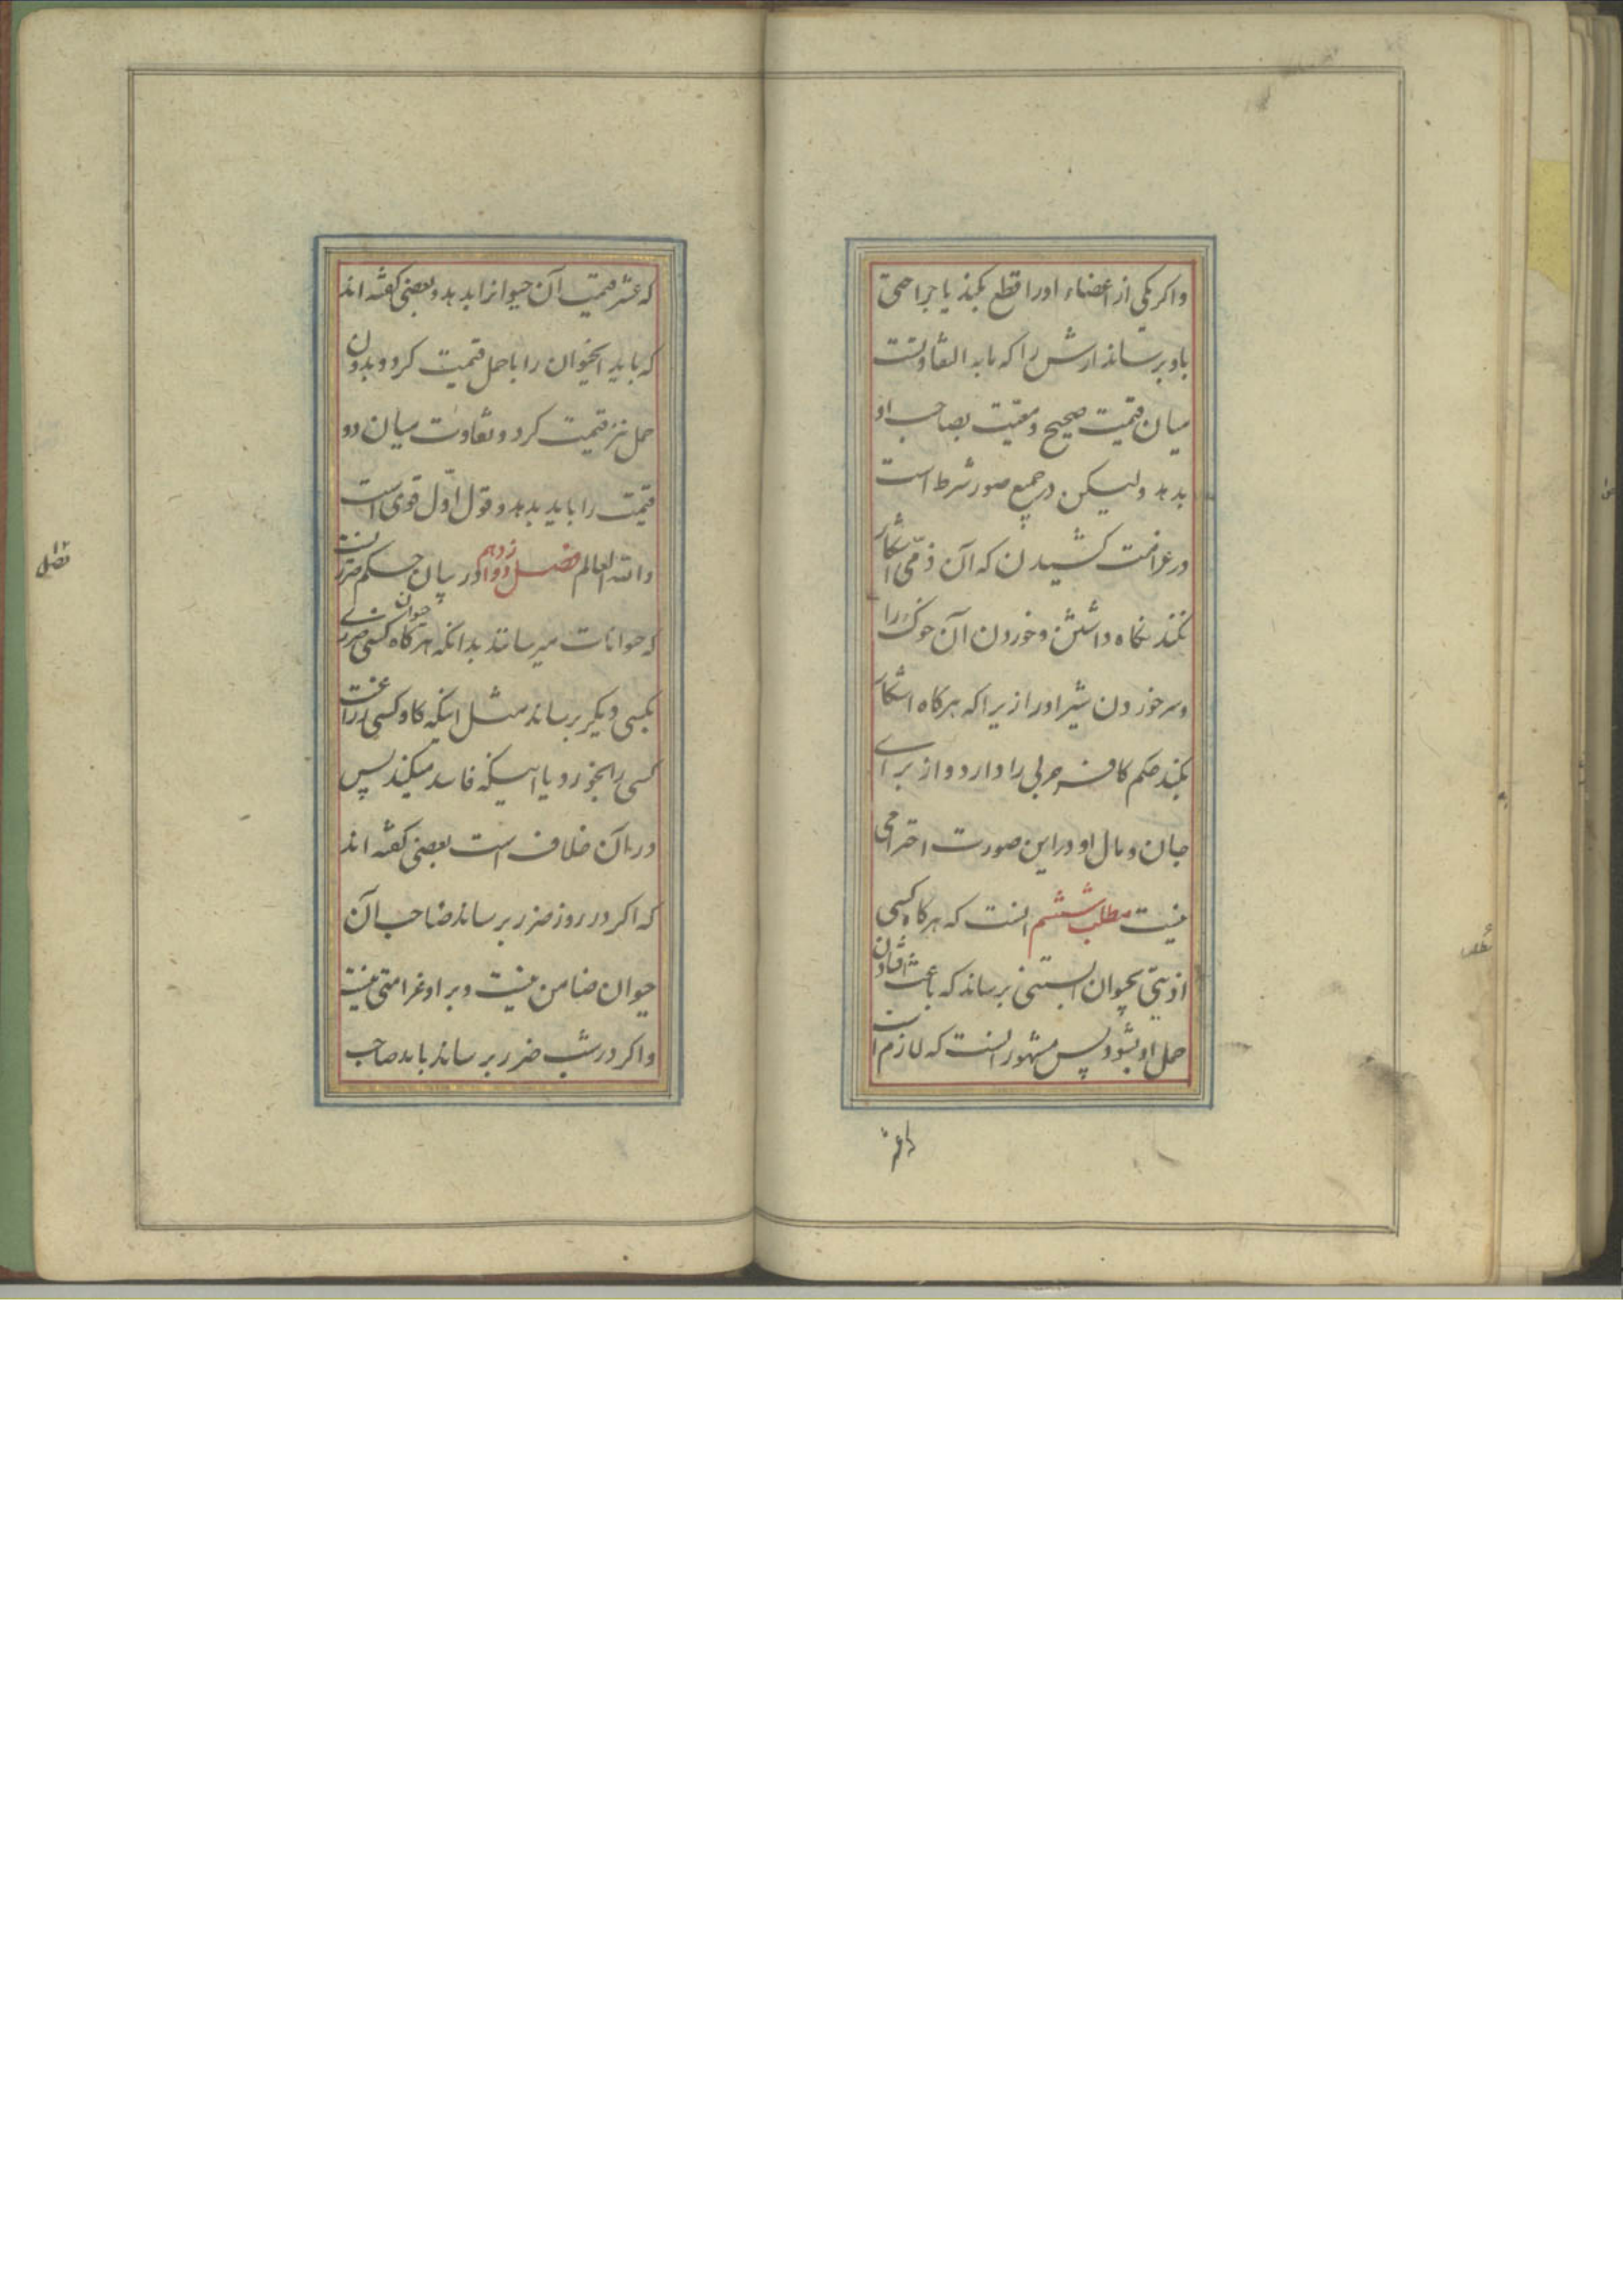 واکر یکی از اعضاء اورا قطع بکند یا جراحتی
باو برساند ارش را که مابه التفاوتست
میان قیمت صحیح و معیب بصاحب او
بدهد ولیکن در جمیع صور شرط است
در غرامت کشیدن که آن ذمّی اشکار
نکند نکاه داشتن و خوردن آن خوک را
و سر خوردن شیر اورا زیرا که هرکاه اشکار
بکند حکم کافر حربی را دارد و از برای
جان و مال او در این صورت احترامی
نیست مطلب ششم انست که هرکاه کسی
اذیتی بحیوان ابستنی برساند که باعث افتادن
حمل او بشود پس مشهور انست که لازم است
که عشر
که عشر قیمت آن حیوانرا بدهد و بعضی کفته اند
که باید انحیوان را با حمل قیمت کرد و بدون
حمل نیز قیمت کرد و تفاوت میان دو
قیمت را باید بدهد و قول اوّل قوی است
والله العالم فصل دوازدهم در بیان حکم ضرریست
که حیوانات میرسانند بدانکه هرکاه حیوان کسی ضرری
بکسی دیکر برساند مثل اینکه کاو کسی زراعت
کسی را بخورد یا اینکه فاسد میکند پس
در ان خلاف است بعضی کفته اند
که اکر در روز ضرر برساند صاحب آن
حیوان ضامن نیست و بر او غرامتی نیست
واکر در شب ضرر برساند باید صاحب
فصل ۱۲
مطلب